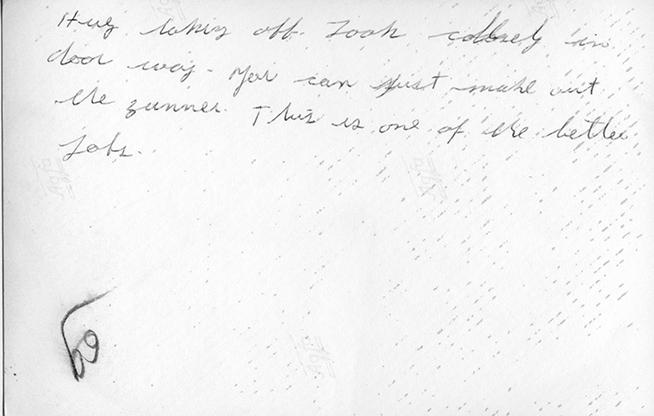 Huey taking off. Look closely in
door way. You can just make out
the gunner. This is one of the better
Jobs.